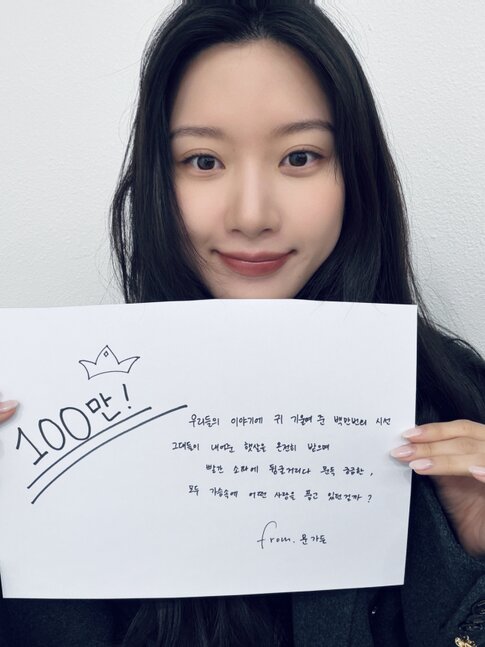 100만!
우리들의 이야기에 귀 기울여 준 백만번의 시선
그대들이 내어준 햇살을 온전히 받으며
빨간 소파에 뒹굴거리다 문득 궁금한,
모두 가슴속에 어떤 사랑을 품고 있던걸까?
from. 문가들